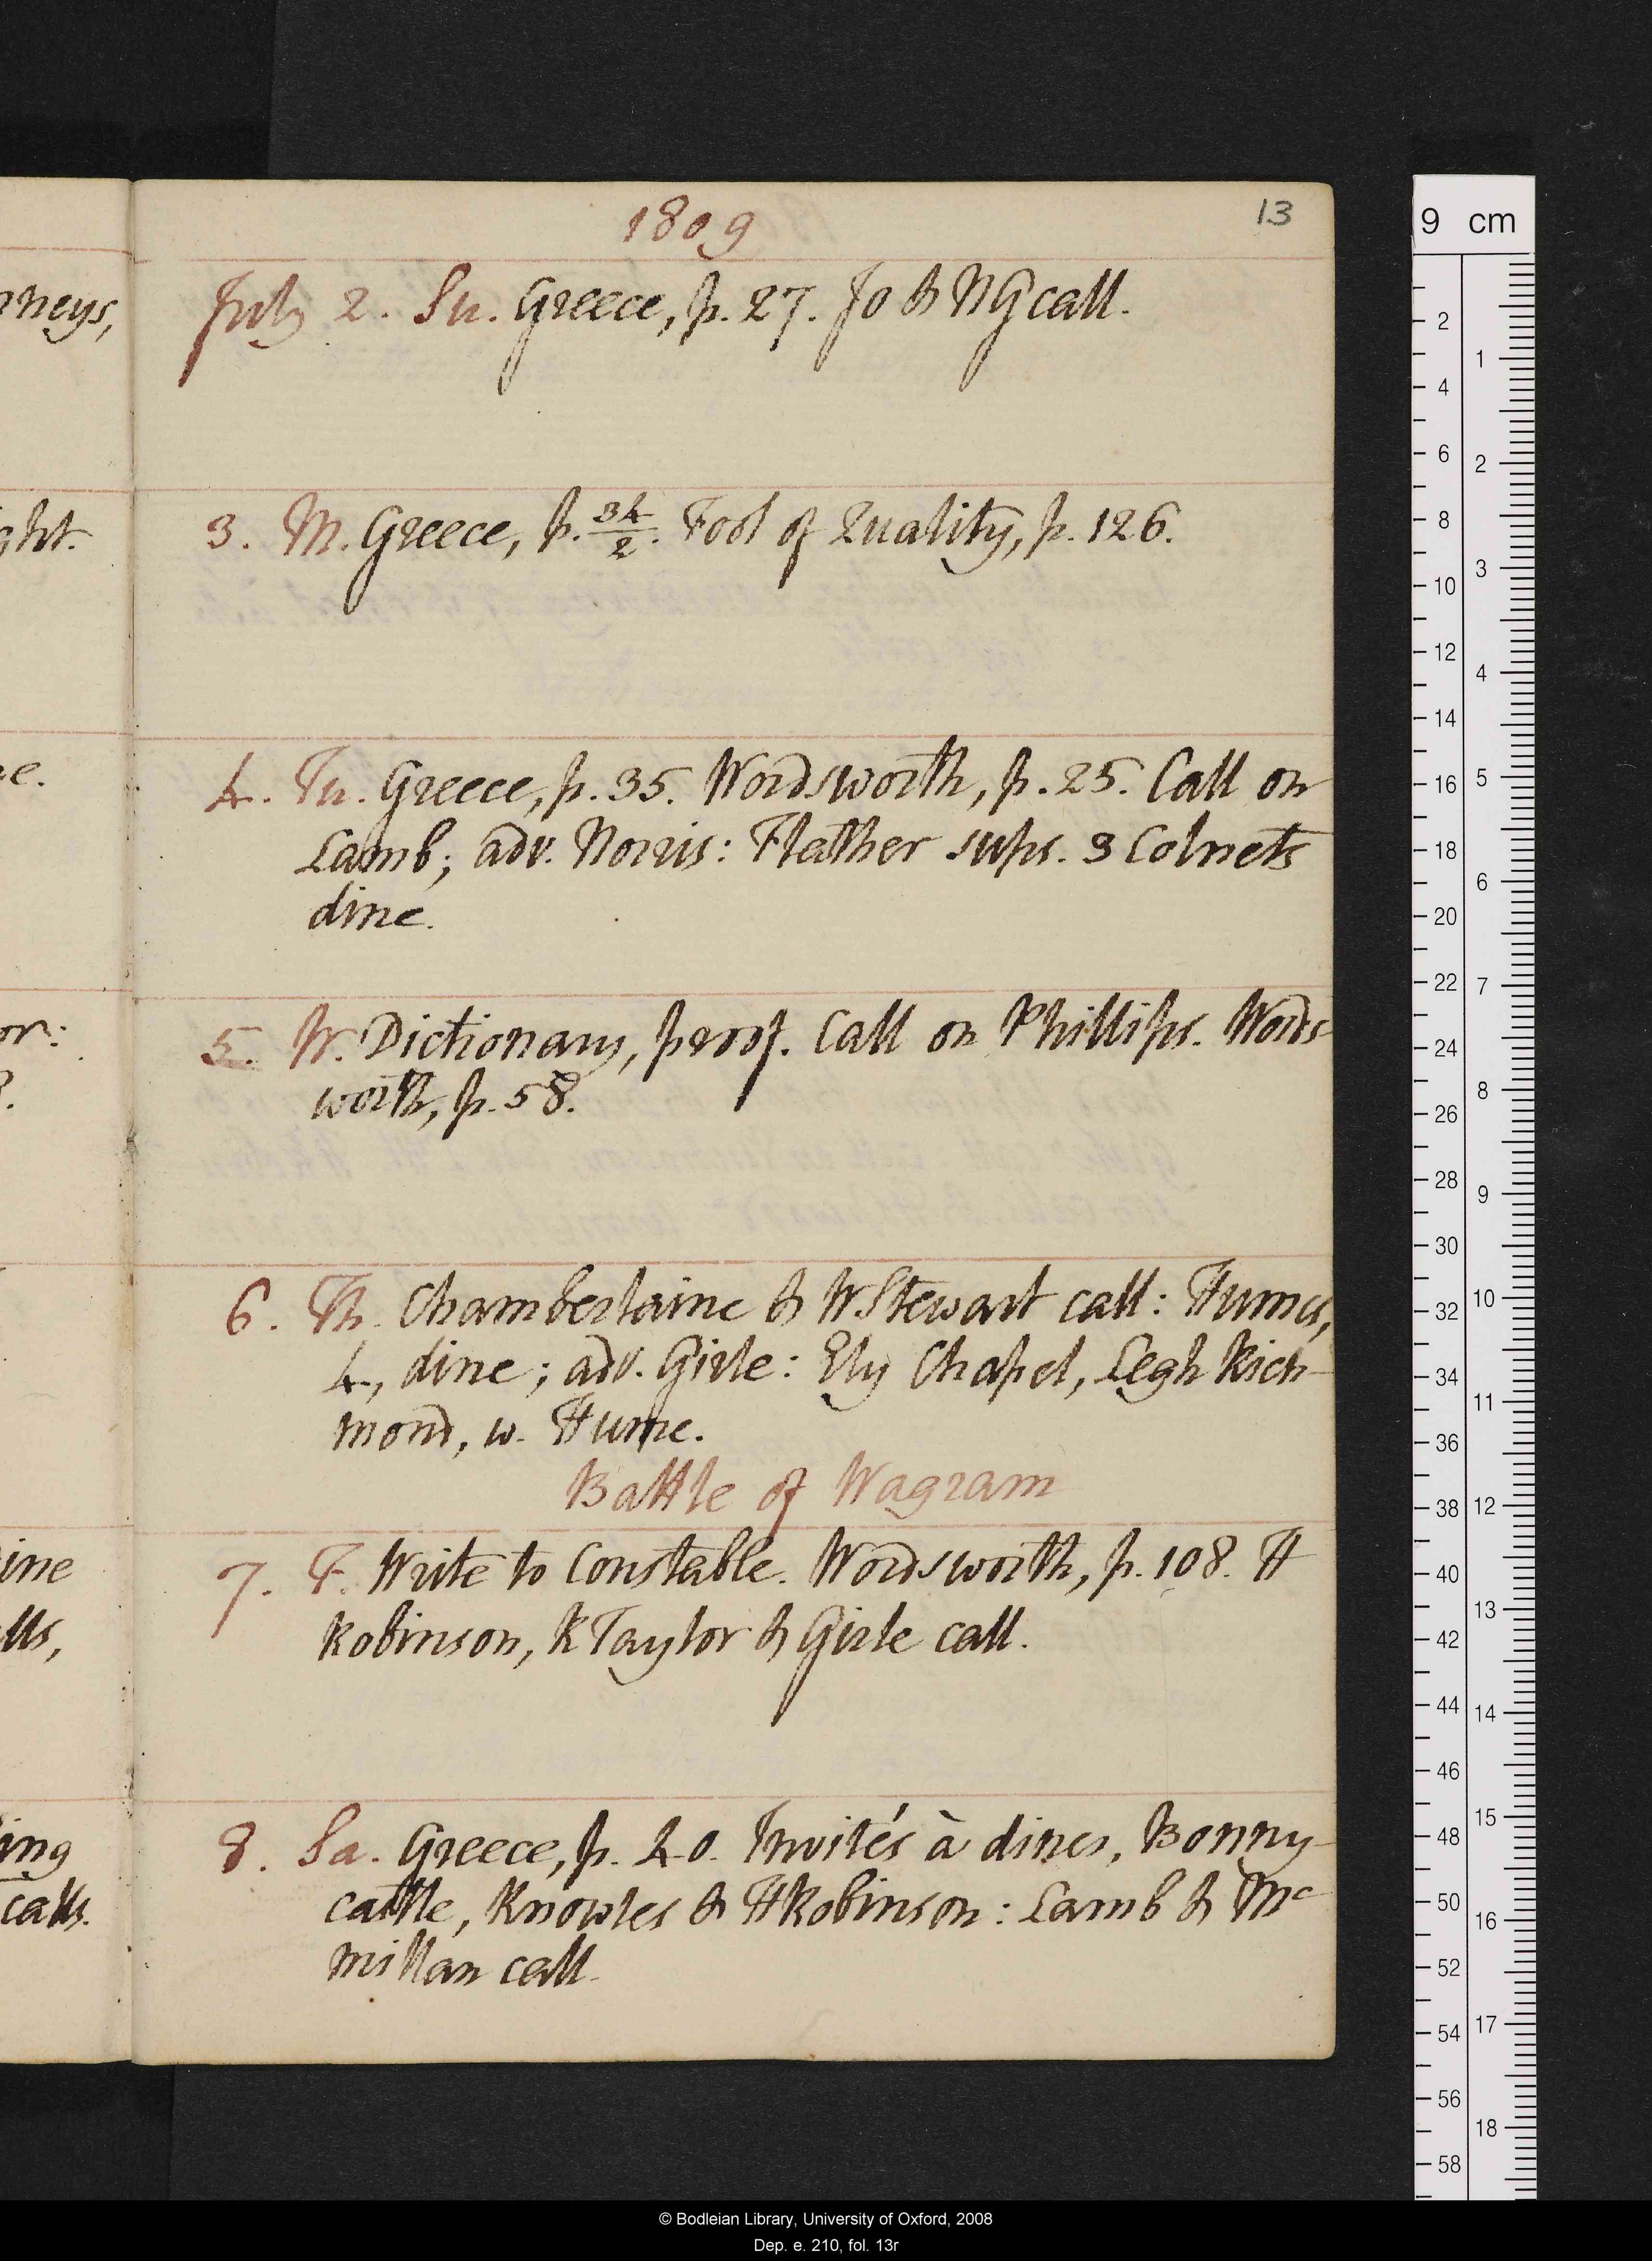 1809
13
July 2. Su. Greece, p. 27. Jo & NG call.
3. M. Greece, p. 34/2. Fool of Quality, p. 126.
4. Tu. Greece, p. 35. Wordsworth, p. 25. Call on
Lamb; adv. Norris: Flather sups. 3 Colnets
dine.
5. W. Dictionary, proof. Call on Phillips. Words-
worth, p. 58.
6. Th. Chamberlaine & W Stewart call: Humes,
4, dine; adv. Girle: Ely Chapel, Legh Rich-
mond, w. Hume.
Battle of Wagram
7. F. Write to Constable. Wordsworth, p. 108. H
Robinson, K Taylor & Girle call.
8. Sa. Greece, p. 40. Invités à diner, Bonny-
castle, Knowles & H Robinson: Lamb & Mc
millan call.
nneys,
ght.
e.
or:
ine
lls,
ing
calls.
9 cm
2
4
6
8
10
12
14
16
18
20
22
24
26
28
30
32
34
36
38
40
42
44
46
48
50
52
54
56
58
1
2
3
4
5
6
7
8
9
10
11
12
13
14
15
16
17
18
© Bodleian Library, University of Oxford, 2008
Dep. e. 210, fol. 13r